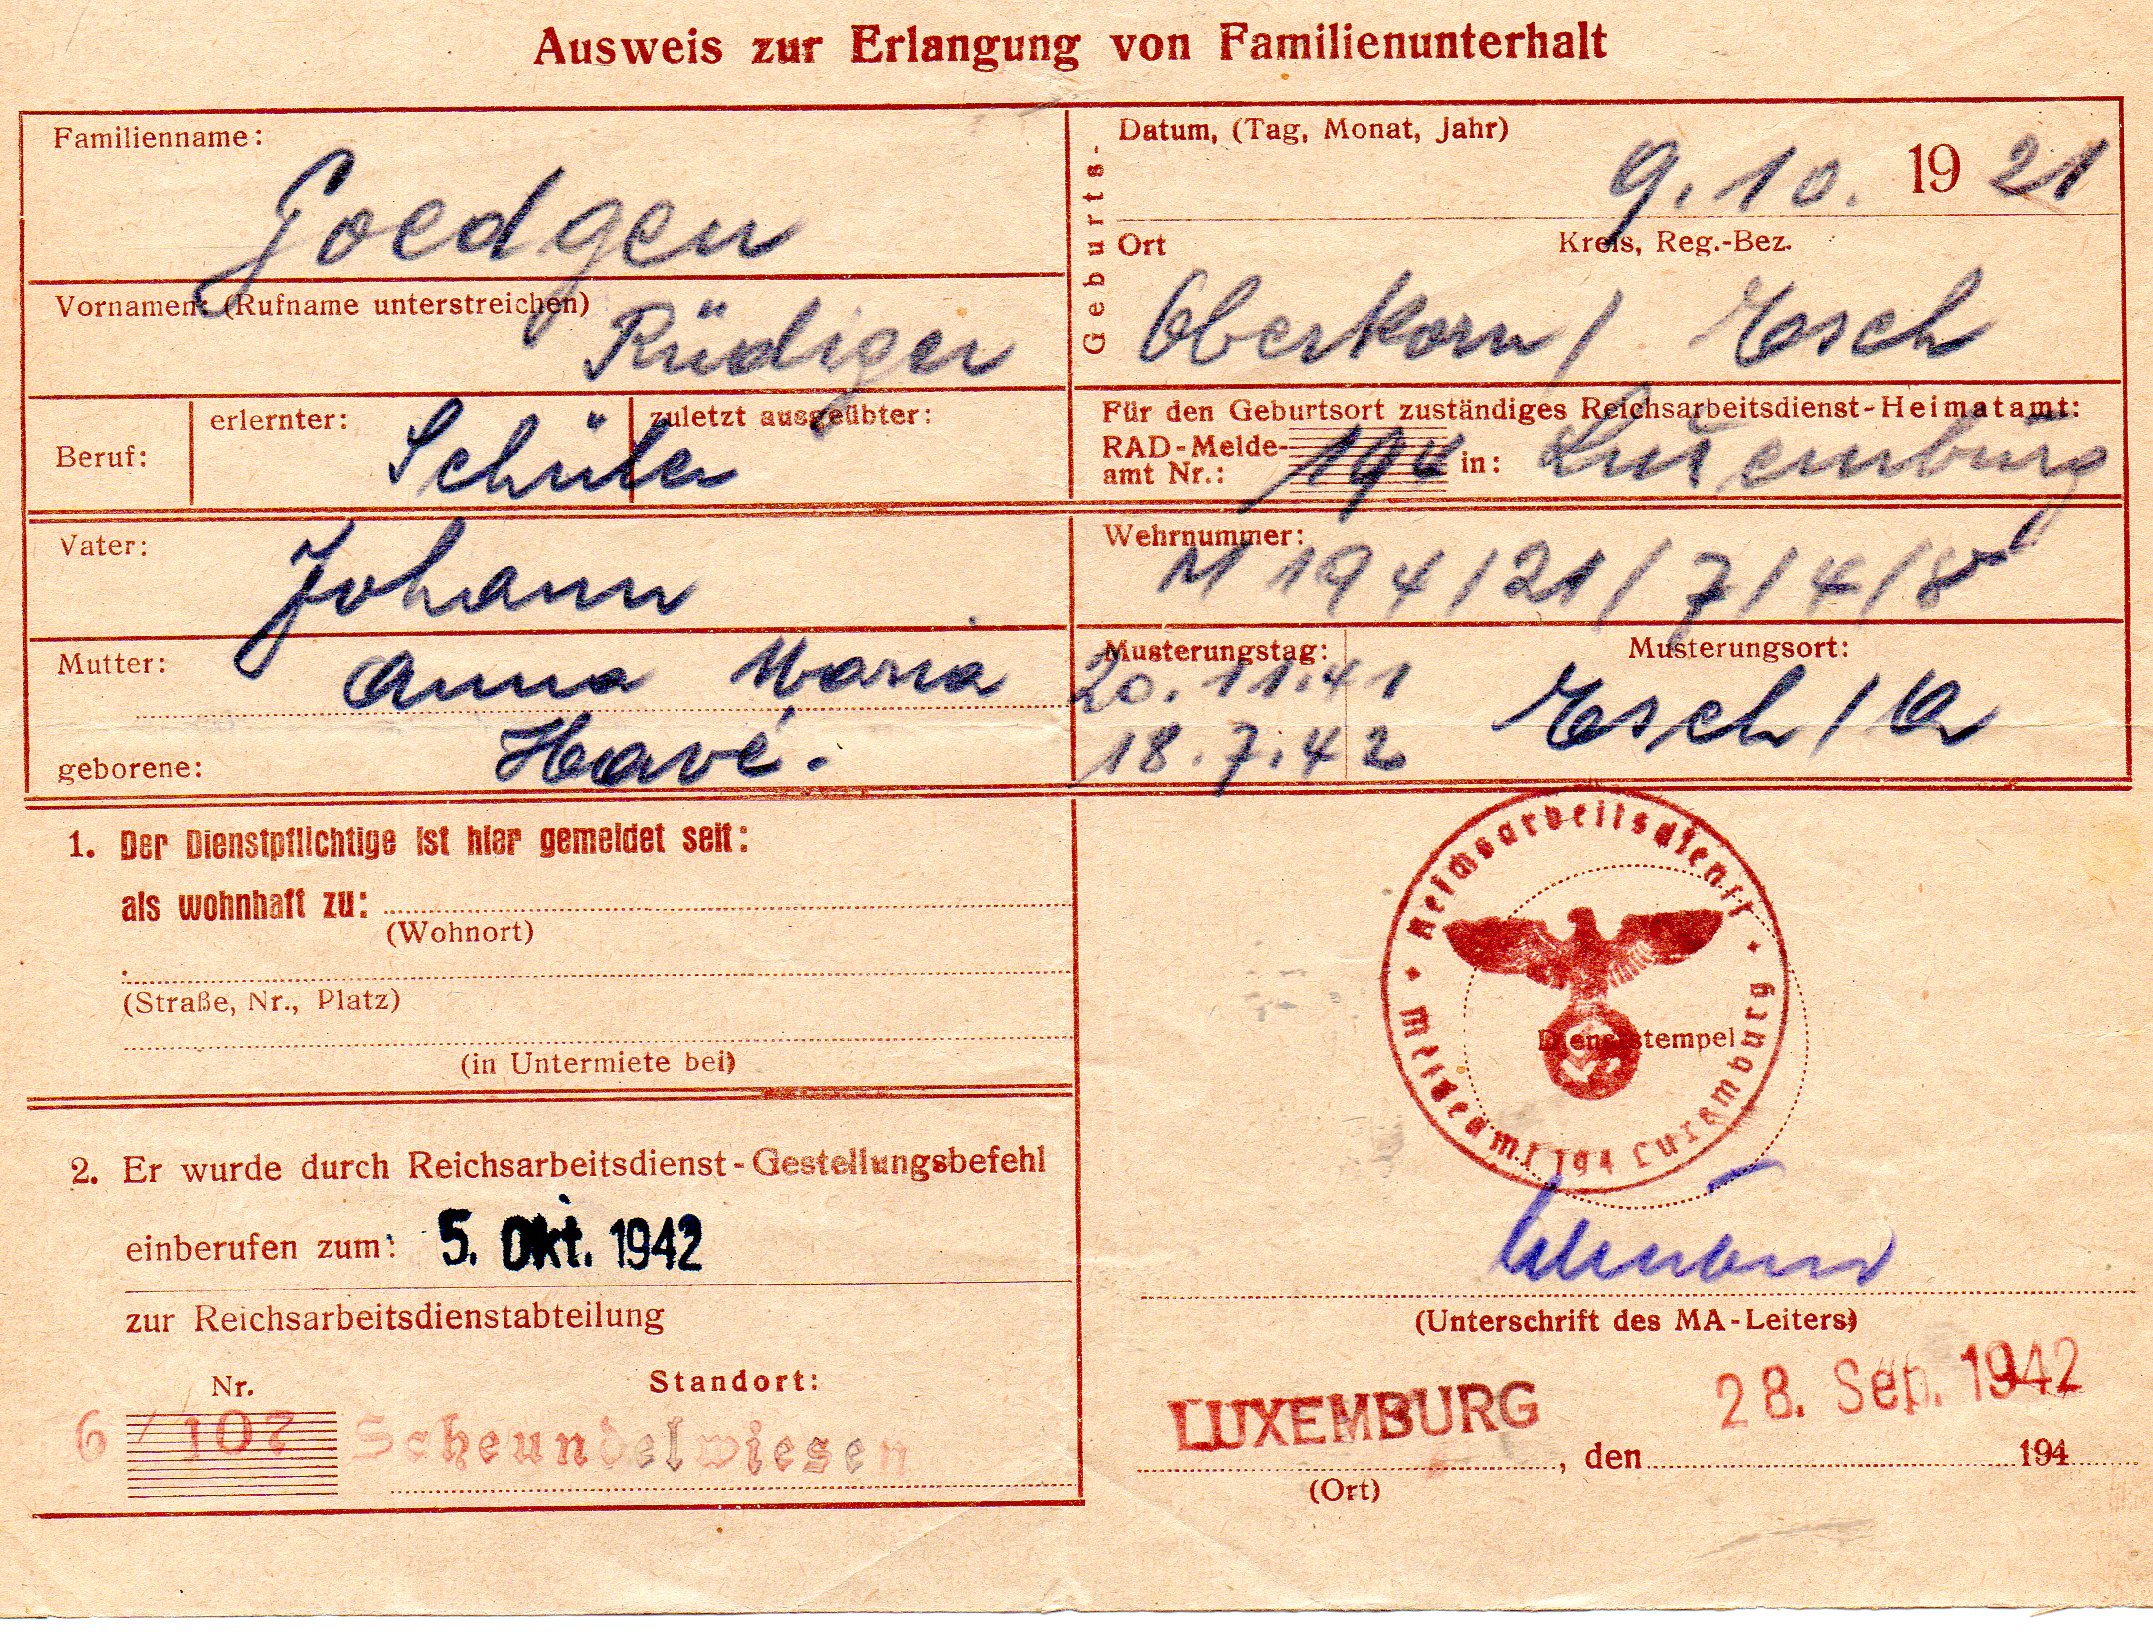 Ausweis zur Erlangung von Familienunterhalt
Familienname:
Goedgen
Vornamen: (Rufname unterstreichen)
Rüdiger
Geburts-
Datum, (Tag, Monat, Jahr)
9. 10. 19 21
Ort Kreis, Reg.-Bez.
Oberkorn / Esch
Beruf: erlernter: zuletzt ausgeübter:
Schüler
Für den Geburtsort zuständiges Reichsarbeitsdienst-Heimatamt:
RAD-Melde-
amt Nr.: 194 in: Luxemburg
Vater: Johann
Wehrnummer:
M 194/21/7/4/8
Mutter: Anna Maria
geborene: Havé.
Musterungstag:
20. 11. 41
18. 7. 42
Musterungsort:
Esch / Al
1. Der Dienstpflichtige ist hier gemeldet seit:
als wohnhaft zu:
(Wohnort)
(Straße, Nr., Platz)
(in Untermiete bei)
2. Er wurde durch Reichsarbeitsdienst-Gestellungsbefehl
einberufen zum: 5. Okt. 1942
zur Reichsarbeitsdienstabteilung
Nr. Standort:
6/107 Scheundelwiesen
Reichsarbeitsdienst
Meldeamt 194 Luxemburg
Dienststempel
(Unterschrift des MA-Leiters)
LUXEMBURG, den 28. Sep. 1942
194
(Ort)